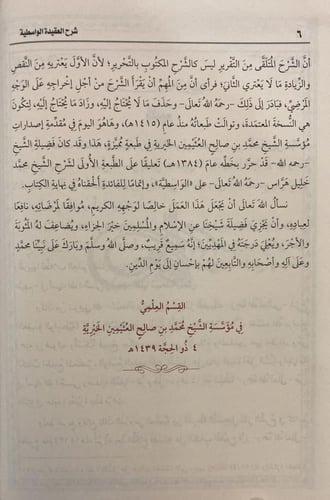 ٦
شرح العقيدة الواسطية
أنَّ الشَّرْحَ المُتَلَقَّى مِنَ التَّقْرِيرِ ليسَ كالشَّرْحِ المَكْتُوبِ بالتَّحْرِيرِ؛ لأنَّ الأوَّلَ يَعْتَرِيهِ مِنَ النَّقْصِ
والزِّيادةِ مَا لَا يَعْتَرِي الثَّانِيَ؛ فرأَى أنَّ مِنَ المهِمِّ أنْ يَقْرَأَ الشَّرْحَ مِنْ أجْلِ إخْراجِهِ عَلَى الوَجْهِ
المَرْضِيِّ، فبَادَرَ إلَى ذَلِكَ -رحمَهُ اللهُ تَعَالَى- وحَذَفَ مَا لَا يُحْتَاجُ إلَيْهِ، وزَادَ مَا يُحْتَاجُ إلَيْهِ، لِتَكُونَ
هِيَ النُّسخَةَ المعتمَدةَ، وتوالَتْ طَبعاتُهُ منذُ عامِ (١٤١٥هـ)، وهَا هُوَ اليومَ فِي مُقدِّمةِ إصداراتِ
مؤسَّسةِ الشَّيخِ محمَّدِ بنِ صالِحٍ العُثَيْمِين الخَيْريَّةِ فِي طبعةٍ مميَّزةٍ، هَذَا وقَد كَانَ فَضِيلةُ الشيخِ
-رحمَهُ اللهُ تَعَالَى- قَدْ حرَّر بخَطِّه عامَ (١٣٨٤هـ) تَعليقًا علَى الطَّبعةِ الأُولَى لشَرْحِ الشيخِ محمَّد
خليل هَرَّاس -رحمَهُ اللهُ تعَالَى- على «الوَاسطيَّة»، وإتمامًا للفَائدةِ ألحَقْناهُ فِي نهايَةِ الكِتابِ.
نسألُ اللهَ تعالَى أنْ يَجعَلَ هَذَا العَمَلَ خالصًا لوَجهِهِ الكرِيمِ، مُوافِقًا لمَرْضاتِه، نافعًا
لعِبادِهِ، وأنْ يَجْزِيَ فَضِيلةَ شَيْخِنَا عنِ الإسْلَامِ والمُسْلِمِينَ خَيْرَ الجَزاءِ، ويُضاعِفَ لهُ المثُوبَةَ
والأَجْرَ، ويُعلِيَ درَجَتَهُ فِي المَهْدِيِّينَ؛ إنَّه سَمِيعٌ قَرِيبٌ، وصلَّى اللهُ وسلَّمَ وبَارَكَ عَلَى نَبِيِّنَا محمَّدٍ
وعلَى آلِه وأصْحَابِهِ والتَّابِعينَ لَهُمْ بإحْسَانٍ إِلَى يَوْمِ الدِّينِ.
القِسْمُ العِلْمِيُّ
فِي مُؤَسَّسَةِ الشَّيْخِ مُحَمَّدِ بنِ صالِحٍ العُثَيْمِين الخَيْرِيَّةِ
٤ ذُو الحِجَّة ١٤٣٩هـ